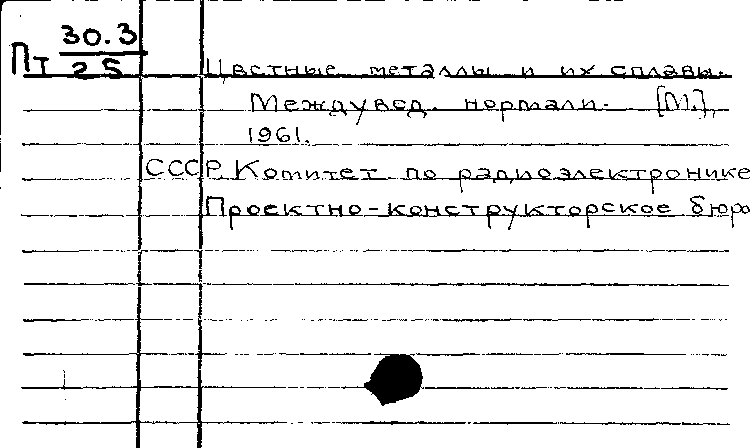 Пт 30.3
25
Цветные металлы и их сплавы.
Междувед. нормали. [М.],
1961.
СССР. Комитет по радиоэлектронике
Проектно-конструкторское бюро